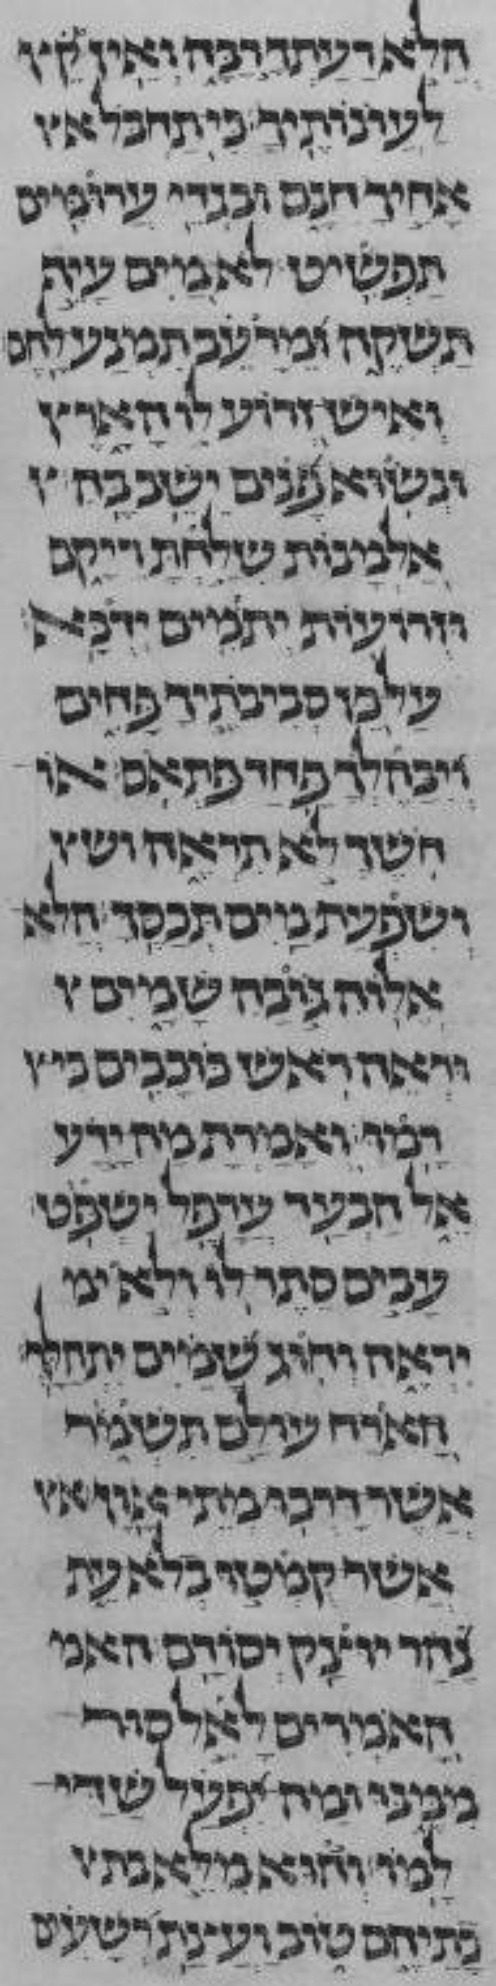 הלא רעתך רבה ואין קץ
לעונותיך כי תחבל א
אחיך חנם ובגדי ערומים
תפשיט לא מים עיף
תשקה ומרעב תמנע לחם
ואיש זרוע לו הארץ
ונשוא פנים ישב בה
אלמנות שלחת ריקם
וזרועות יתמים ידכא
על כן סביבתיך פחים
ויבהלך פחד פתאם או
חשך לא תראה וש
ושפעת מים תכסך הלא
אלוה גובה שמים
וראה ראש כוכבים כי
רמו ואמרת מה ידע
אל הבעד ערפל ישפט
עבים סתר לו ולא ימי
יראה וחוג שמים יתהלך
הארח עולם תשמר
אשר דרכו מתי און א
אשר קמטו בלא עת
נהר יוצק יסודם האמ
האמרים לאל סור
ממנו ומה יפעל שדי
למו והוא מלא בת
בתיהם טוב ועצת רשעים